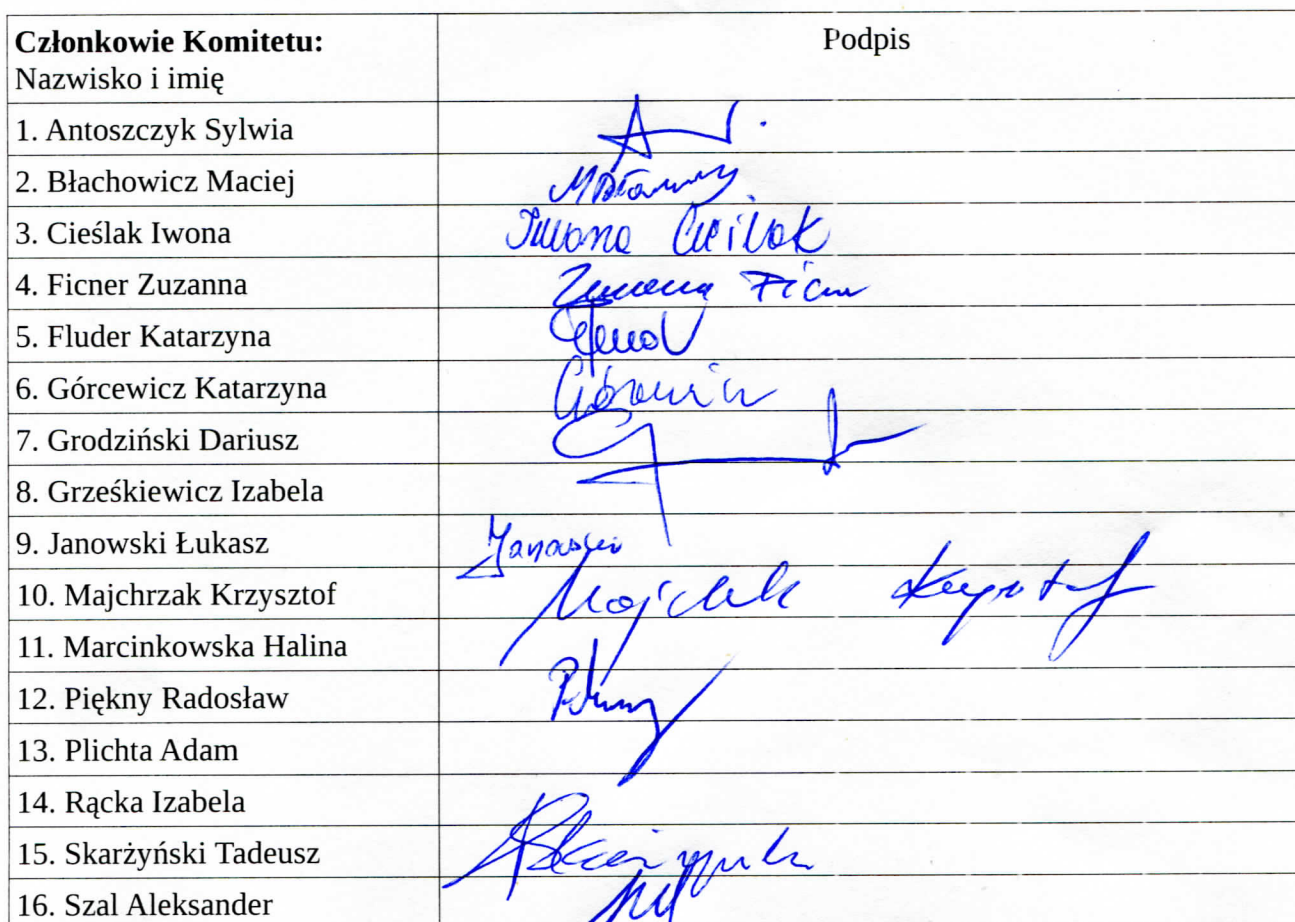 Członkowie Komitetu:
Nazwisko i imię
Podpis
1. Antoszczyk Sylwia
2. Błachowicz Maciej
3. Cieślak Iwona Iwona Cieślak
4. Ficner Zuzanna
5. Fluder Katarzyna
6. Górcewicz Katarzyna
7. Grodziński Dariusz
8. Grześkiewicz Izabela
9. Janowski Łukasz Janowski
10. Majchrzak Krzysztof
11. Marcinkowska Halina
12. Piękny Radosław
13. Plichta Adam
14. Rącka Izabela
15. Skarżyński Tadeusz
16. Szal Aleksander